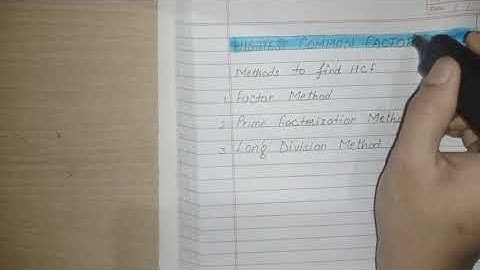 Date
HIGHEST COMMON FACTOR
Methods to find HCF
1. Factor Method
2. Prime Factmization Metho
3. Long Division Method